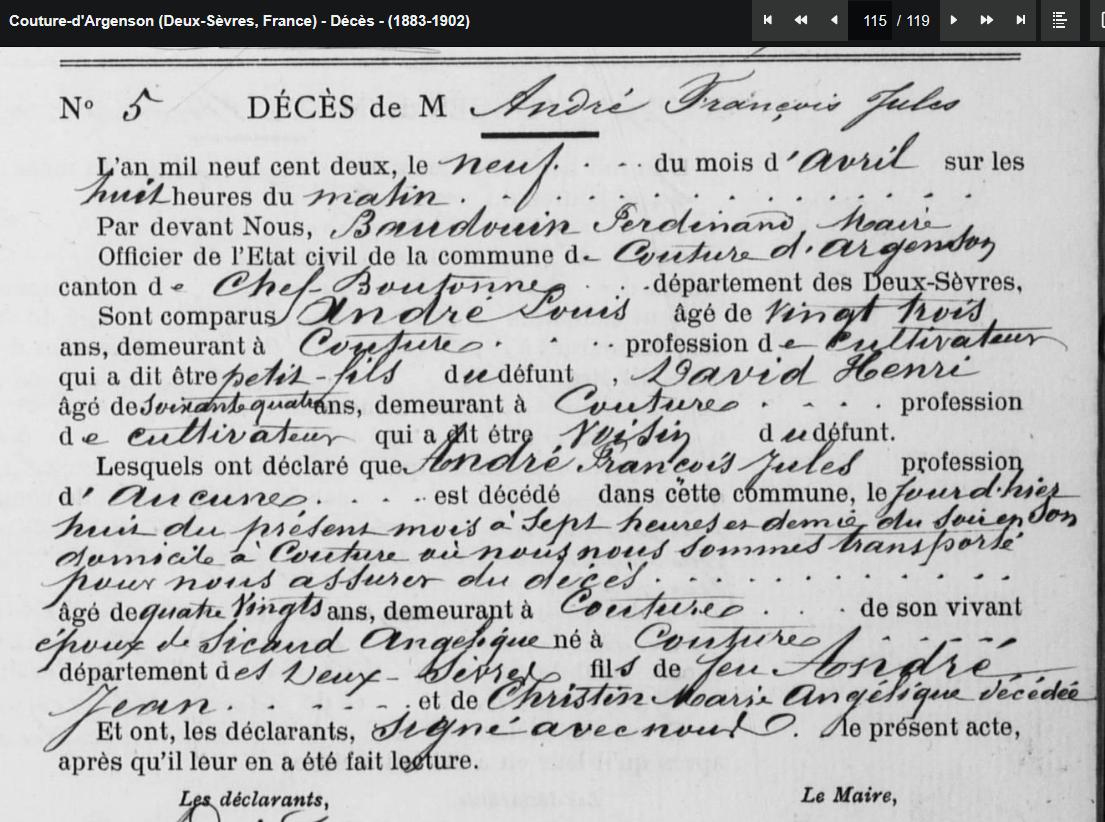 Couture-d'Argenson (Deux-Sèvres, France) - Décès - (1883-1902)
115 / 119
N° 5 DÉCÈS de M André François Jules
L'an mil neuf cent deux, le neuf du mois d'avril sur les
huit heures du matin.
Par devant Nous, Baudouin Ferdinand Maire
Officier de l'Etat civil de la commune de Couture d'argenson
canton de Chef-Boutonne département des Deux-Sèvres,
Sont comparus André Louis âgé de Vingt trois
ans, demeurant à Couture profession de cultivateur
qui a dit être petit-fils du défunt, David Henri
âgé de soixante quatre ans, demeurant à Couture profession
de cultivateur qui a dit étre Voisin du défunt.
Lesquels ont déclaré que André François Jules profession
d'aucune est décédé dans cette commune, le jour d'hier
huit du présent mois à sept heures et demie du soir en son
domicile à Couture où nous nous sommes transporté
pour nous assurer du décès
âgé de quatre Vingts ans, demeurant à Couture de son vivant
époux de Sicaud Angélique né à Couture
département des Deux-Sèvres fils de feu André
Jean et de Christin Marie Angélique décédée
Et ont, les déclarants, signé avec nous le présent acte,
après qu'il leur en a été fait lecture.
Les déclarants, Le Maire,